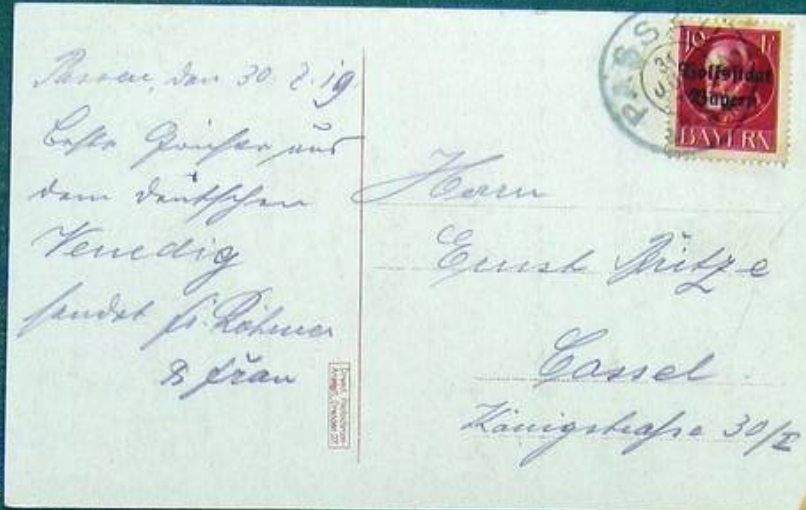 Passau, den 30.7.19.
Beste Grüsse aus
dem deutschen
Venedig
sendet Fr. Röhmer
& Frau
PASS
10 P
Volksstaat
Bayern
BAYERN
Herrn
Ernst
Cassel
Königstrasse 30/II